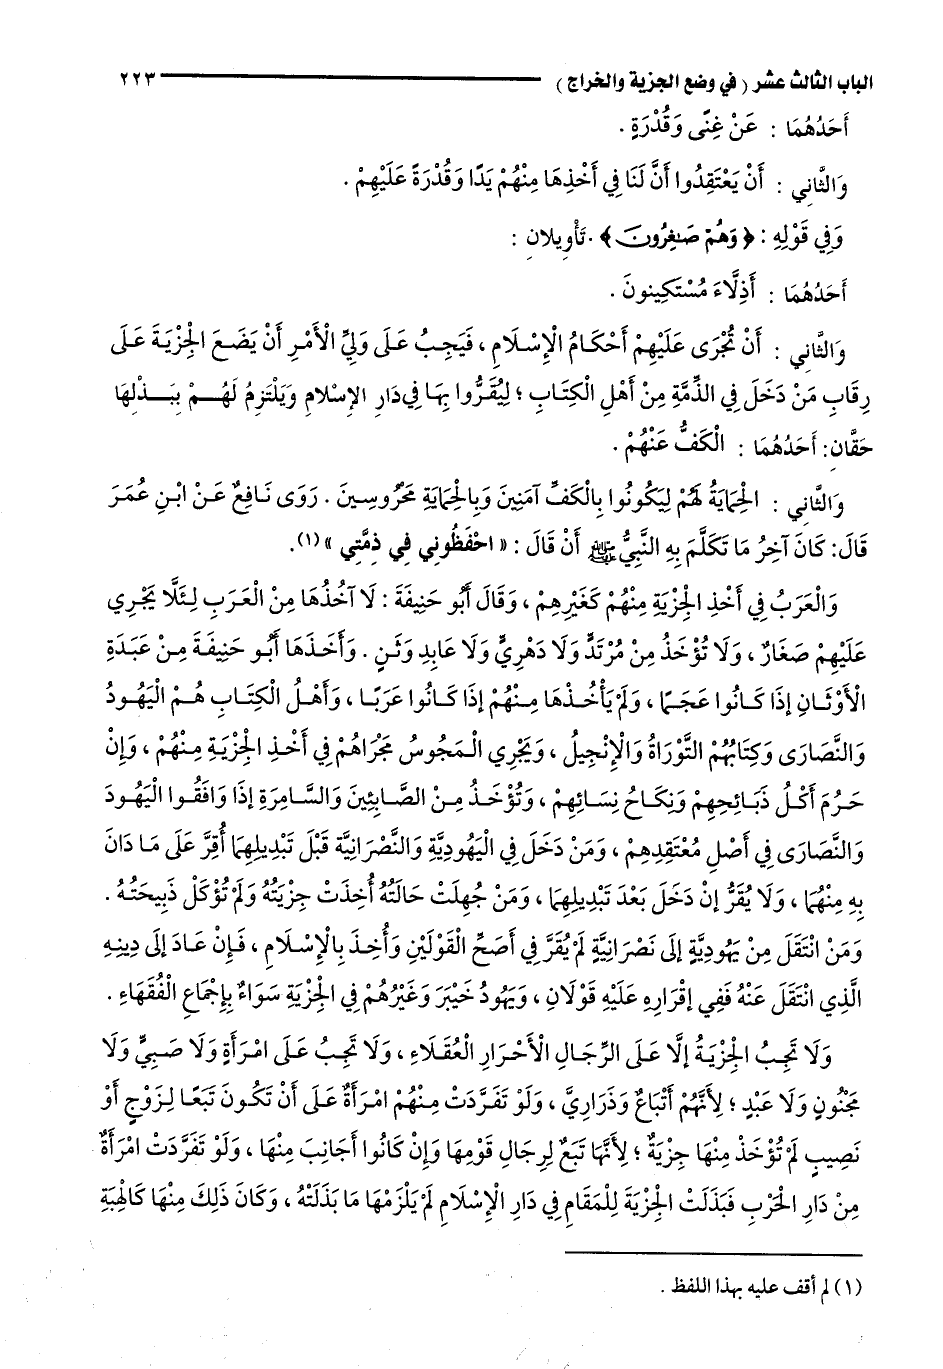 الباب الثالث عشر ( في وضع الجزية والخراج ) ٢٢٣
أَحَدُهُمَا : عَنْ غِنًى وَقُدْرَةٍ .
وَالثَّانِي : أَنْ يَعْتَقِدُوا أَنَّ لَنَا فِي أَخْذِهَا مِنْهُمْ يَدًا وَقُدْرَةً عَلَيْهِمْ .
وَفِي قَوْلِهِ : ﴿ وَهُمْ صَـٰغِرُونَ ﴾ . تَأْوِيلَانِ :
أَحَدُهُمَا : أَذِلَّاءَ مُسْتَكِينُونَ .
وَالثَّانِي : أَنْ تُجْرَى عَلَيْهِمْ أَحْكَامُ الْإِسْلَامِ ، فَيَجِبُ عَلَى وَلِيِّ الْأَمْرِ أَنْ يَضَعَ الْجِزْيَةَ عَلَى
رِقَابِ مَنْ دَخَلَ فِي الذِّمَّةِ مِنْ أَهْلِ الْكِتَابِ ؛ لِيُقَرُّوا بِهَا فِي دَارِ الإِسْلَامِ وَيَلْتَزِمُ لَهُمْ بِبَذْلِهَا
حَقَّانِ : أَحَدُهُمَا : الْكَفُّ عَنْهُمْ .
وَالثَّانِي : الْحِمَايَةُ لَهُمْ لِيَكُونُوا بِالْكَفِّ آمَنِينَ وَبِالْحِمَايَةِ مَحْرُوسِينَ . رَوَى نَافِعٌ عَنْ ابْنِ عُمَرَ
قَالَ : كَانَ آخِرُ مَا تَكَلَّمَ بِهِ النَّبِيُّ ﷺ أَنْ قَالَ : « احْفَظُونِي فِي ذِمَّتِي » (١).
وَالْعَرَبُ فِي أَخْذِ الْجِزْيَةِ مِنْهُمْ كَغَيْرِهِمْ ، وَقَالَ أَبُو حَنِيفَةَ : لَا آخُذُهَا مِنْ الْعَرَبِ لِئَلَّا يَجْرِي
عَلَيْهِمْ صَغَارٌ ، وَلَا تُؤْخَذُ مِنْ مُرْتَدٍّ وَلَا دَهْرِيٍّ وَلَا عَابِدِ وَثَنٍ . وَأَخَذَهَا أَبُو حَنِيفَةَ مِنْ عَبَدَةِ
الْأَوْثَانِ إذَا كَانُوا عَجَمًا ، وَلَمْ يَأْخُذْهَا مِنْهُمْ إذَا كَانُوا عَرَبًا ، وَأَهْلُ الْكِتَابِ هُمْ الْيَهُودُ
وَالنَّصَارَى وَكِتَابُهُمْ التَّوْرَاةُ وَالْإِنْجِيلُ ، وَيَجْرِي الْمَجُوسُ مَجْرَاهُمْ فِي أَخْذِ الْجِزْيَةِ مِنْهُمْ ، وَإِنْ
حَرُمَ أَكْلُ ذَبَائِحِهِمْ وَنِكَاحُ نِسَائِهِمْ ، وَتُؤْخَذُ مِنْ الصَّابِئِينَ وَالسَّامِرَةِ إذَا وَافَقُوا الْيَهُودَ
وَالنَّصَارَى فِي أَصْلِ مُعْتَقِدِهِمْ ، وَمَنْ دَخَلَ فِي الْيَهُودِيَّةِ وَالنَّصْرَانِيَّةِ قَبْلَ تَبْدِيلِهِمَا أُقِرَّ عَلَى مَا دَانَ
بِهِ مِنْهُمَا ، وَلَا يُقَرُّ إنْ دَخَلَ بَعْدَ تَبْدِيلِهِمَا ، وَمَنْ جُهِلَتْ حَالَتُهُ أُخِذَتْ جِزْيَتُهُ وَلَمْ تُؤْكَلْ ذَبِيحَتُهُ .
وَمَنْ انْتَقَلَ مِنْ يَهُودِيَّةٍ إلَى نَصْرَانِيَّةٍ لَمْ يُقَرَّ فِي أَصَحِّ الْقَوْلَيْنِ وَأُخِذَ بِالْإِسْلَامِ ، فَإِنْ عَادَ إلَى دِينِهِ
الَّذِي انْتَقَلَ عَنْهُ فَفِي إقْرَارِهِ عَلَيْهِ قَوْلَانِ ، وَيَهُودُ خَيْبَرَ وَغَيْرُهُمْ فِي الْجِزْيَةِ سَوَاءٌ بِإِجْمَاعِ الْفُقَهَاءِ .
وَلَا تَجِبُ الْجِزْيَةُ إلَّا عَلَى الرِّجَالِ الْأَحْرَارِ الْعُقَلَاءِ ، وَلَا تَجِبُ عَلَى امْرَأَةٍ وَلَا صَبِيٍّ وَلَا
مَجْنُونٍ وَلَا عَبْدٍ ؛ لِأَنَّهُمْ أَتْبَاعٌ وَذَرَارِيَّ ، وَلَوْ تَفَرَّدَتْ مِنْهُمْ امْرَأَةٌ عَلَى أَنْ تَكُونَ تَبَعًا لِزَوْجٍ أَوْ
نَصِيبٍ لَمْ تُؤْخَذْ مِنْهَا جِزْيَةٌ ؛ لِأَنَّهَا تَبَعٌ لِرِجَالِ قَوْمِهَا وَإِنْ كَانُوا أَجَانِبَ مِنْهَا ، وَلَوْ تَفَرَّدَتْ امْرَأَةٌ
مِنْ دَارِ الْحَرْبِ فَبَذَلَتْ الْجِزْيَةَ لِلْمَقَامِ فِي دَارِ الْإِسْلَامِ لَمْ يَلْزَمْهَا مَا بَذَلَتْهُ ، وَكَانَ ذَلِكَ مِنْهَا كَالْهِبَةِ
(١) لم أقف عليه بهذا اللفظ .